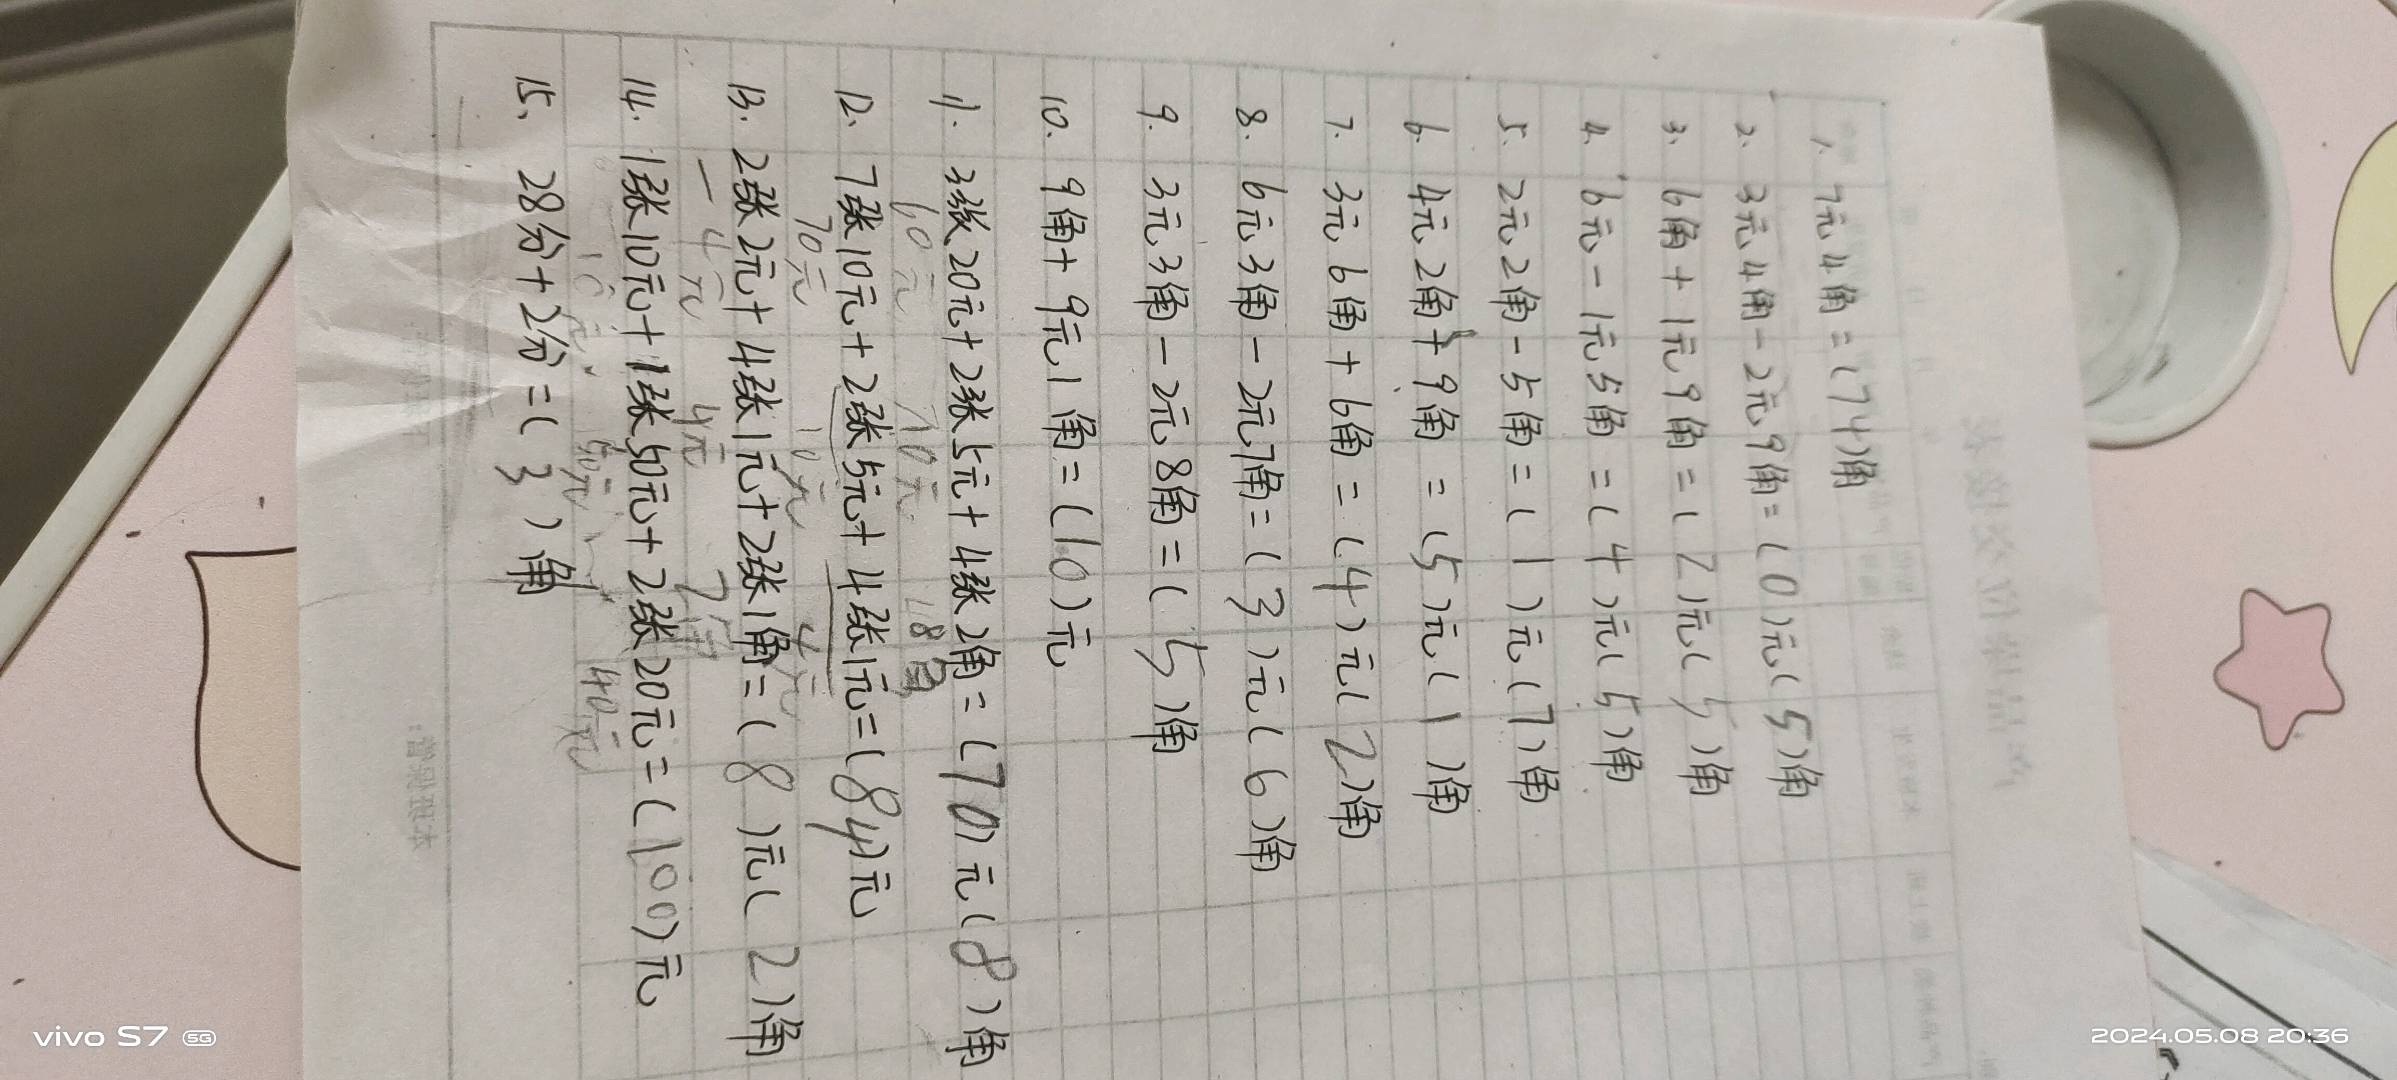 1. 7元4角=(74)角
2. 3元4角-2元9角=(0)元(5)角
3. 6角+1元9角=(2)元(5)角
4. 6元-1元5角=(4)元(5)角
5. 2元2角-5角=(1)元(7)角
6. 4元2角+9角=(5)元(1)角
7. 3元6角+6角=(4)元(2)角
8. 6元3角-2元7角=(3)元(6)角
9. 3元3角-2元8角=(5)角
10. 9角+9元1角=(10)元
11. 3张20元+2张5元+4张2角=(70)元(8)角
60元 10元 8角
12. 7张10元+2张5元+4张1元=(84)元
70元 10元 4元
13. 2张2元+4张1元+2张1角=(8)元(2)角
4元 4元
14. 1张10元+1张50元+2张20元=(100)元
10元 50元 40元
15. 28分+2分=(3)角
vivo S7 5G
2024.05.08 20:36